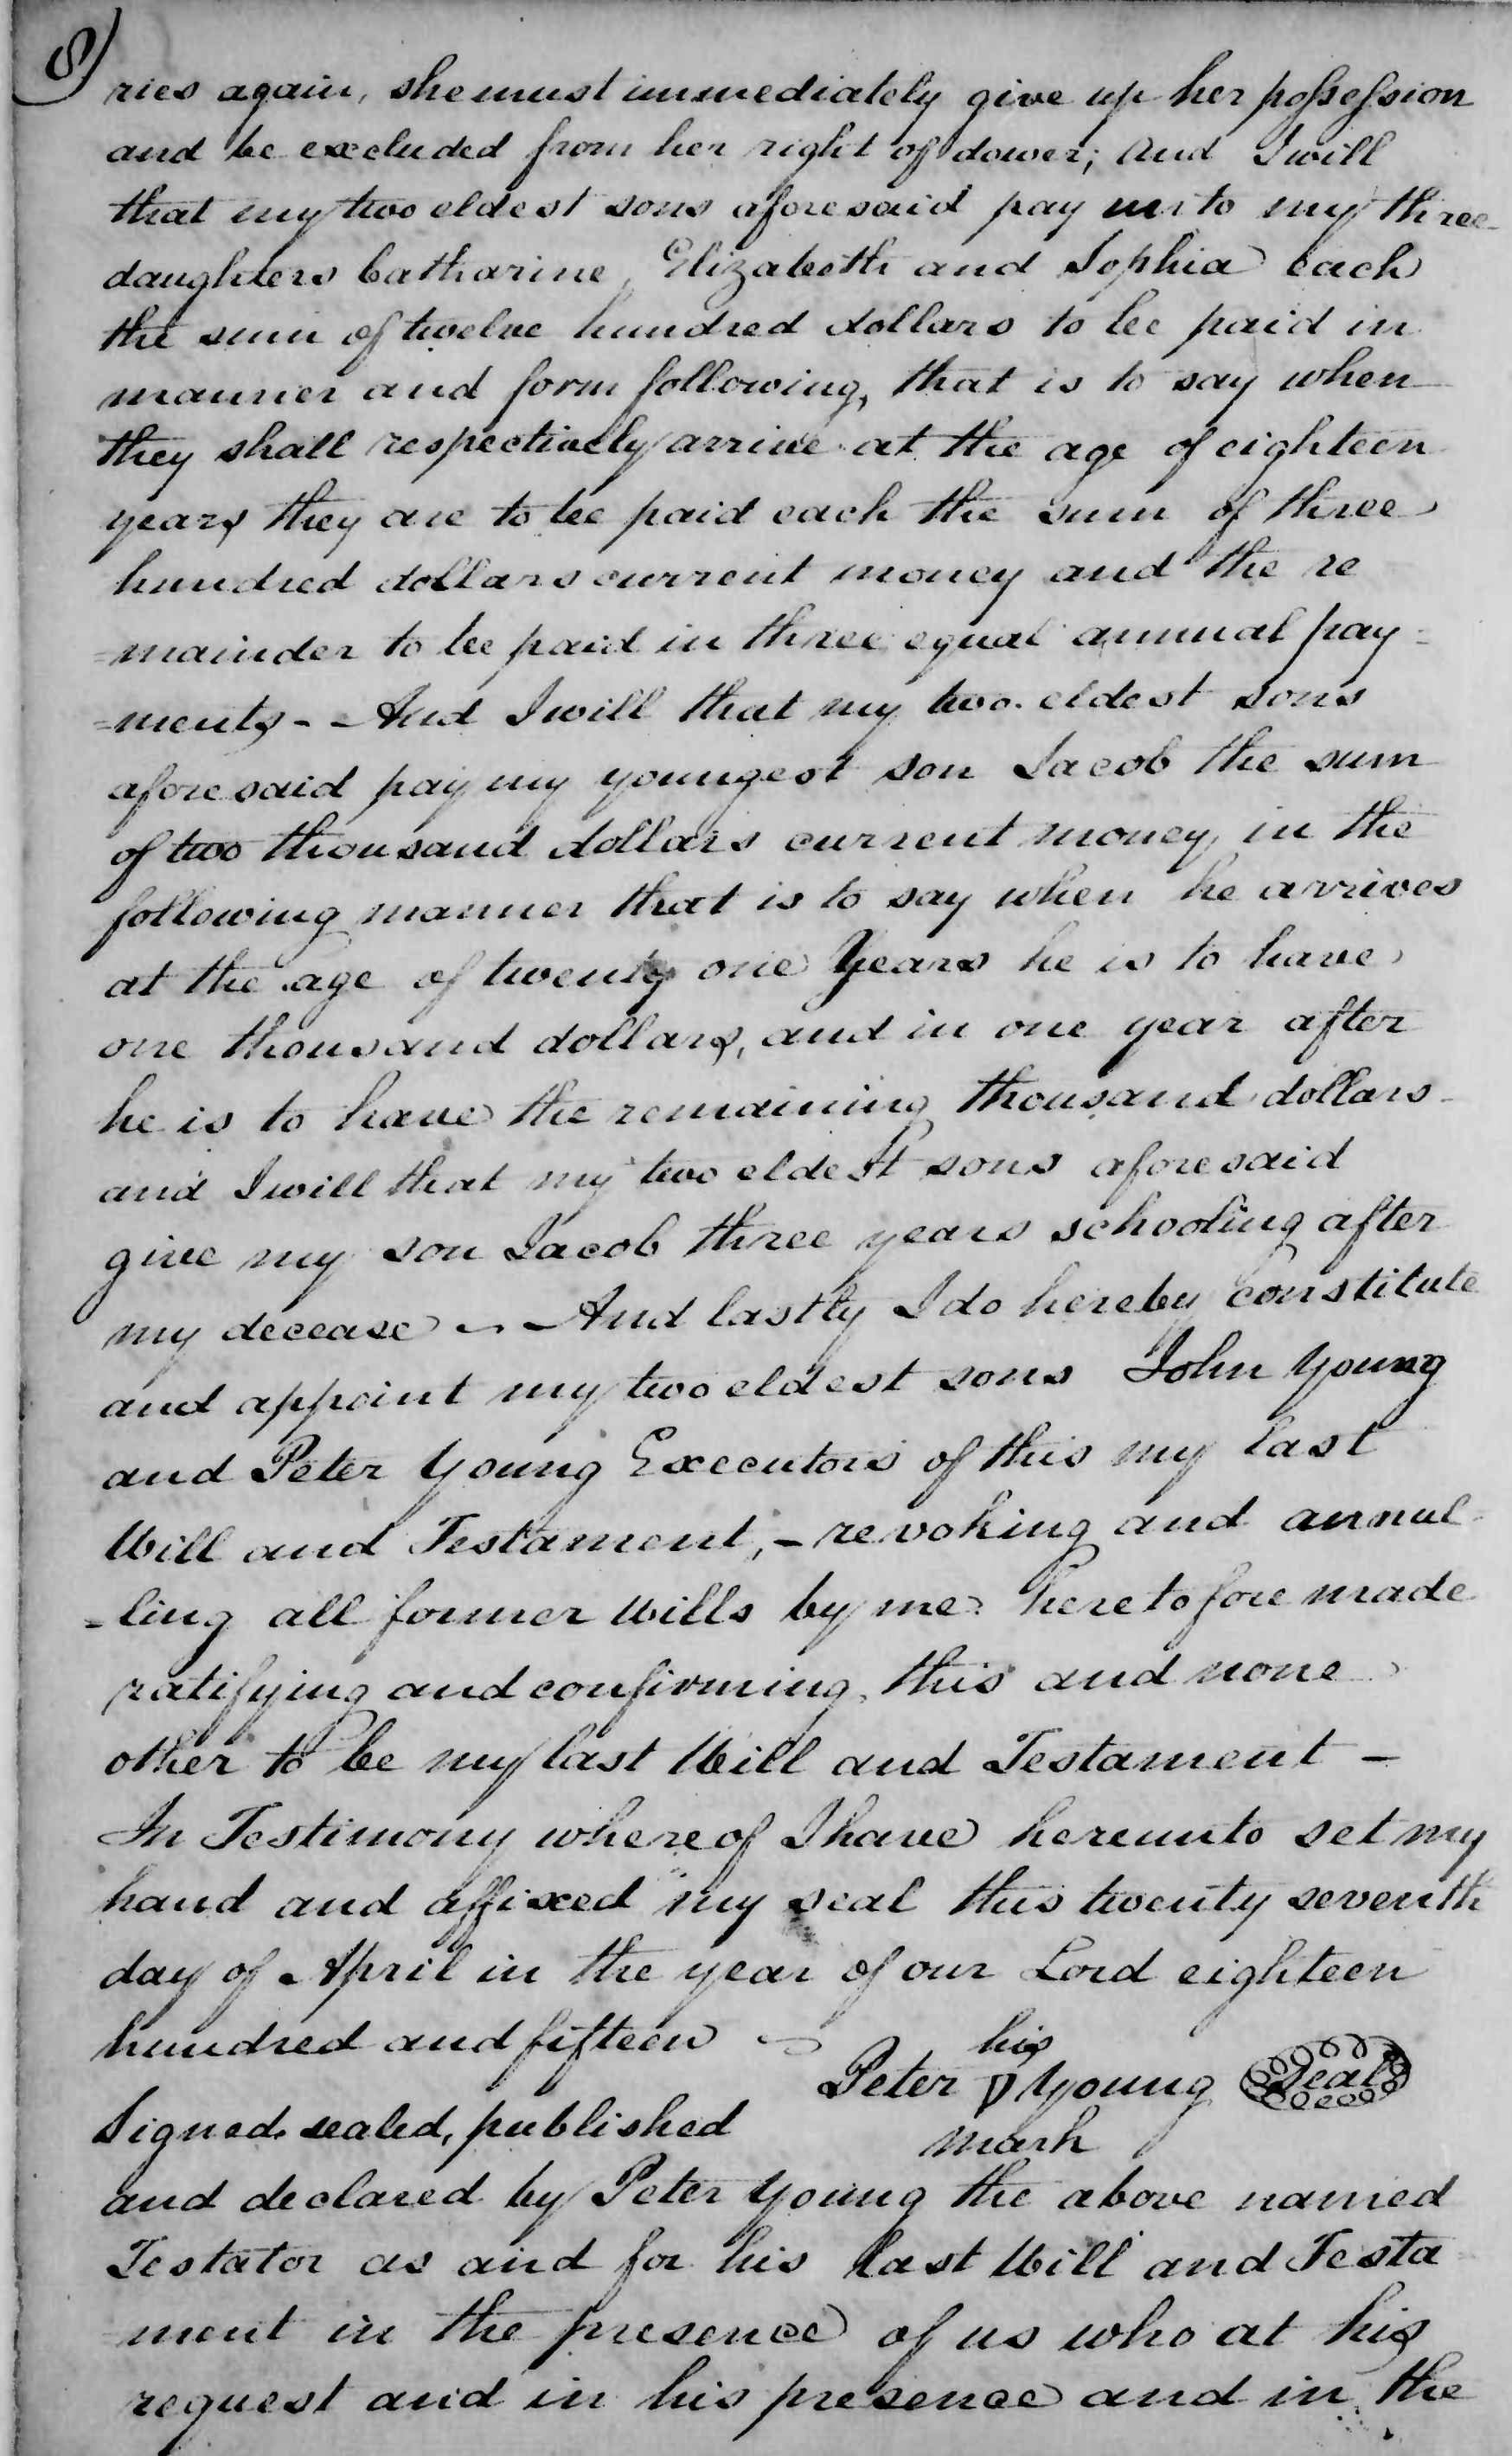 8)
ries again, she must immediately give up her possession
and be excluded from her right of dower; And I will
that my two eldest sons aforesaid pay unto my three
daughters Catharine, Elizabeth and Sophia each
the sum of twelve hundred dollars to be paid in
manner and form following, that is to say when
they shall respectively arrive at the age of eighteen
years they are to be paid each the sum of three
hundred dollars current money and the re
=mainder to be paid in three equal annual pay=
=ments - And I will that my two eldest sons
aforesaid pay my youngest son Jacob the sum
of two thousand dollars current money, in the
following manner that is to say when he arrives
at the age of twenty one Years he is to have
one thousand dollars, and in one year after
he is to have the remaining thousand dollars
and I will that my two eldest sons aforesaid
give my son Jacob three years schooling after
my decease - And lastly I do hereby constitute
and appoint my two eldest sons John Young
and Peter Young Executors of this my last
Will and Testament, - revoking and annul=
=ling all former Wills by me heretofore made
ratifying and confirming this and none
other to be my last Will and Testament -
In Testimony whereof I have hereunto set my
hand and affixed my seal this twenty seventh
day of April in the year of our Lord eighteen
hundred and fifteen
his
Peter Young Seal
mark
Signed, sealed, published
and declared by Peter Young the above named
Testator as and for his last Will and Testa
ment in the presence of us who at his
request and in his presence and in the